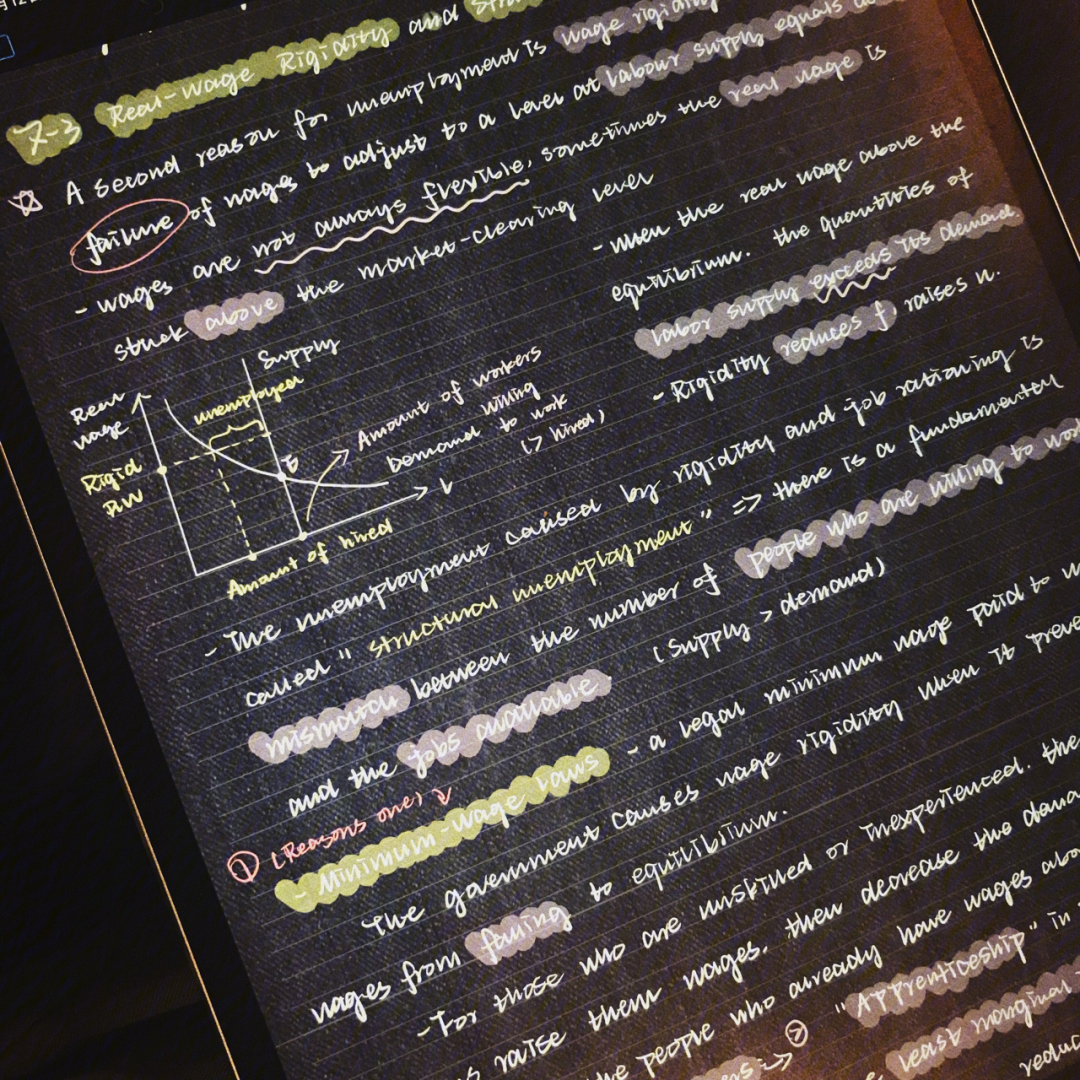 7-3 Real-Wage Rigidity and
A second reason for unemployment is wage rigidity
failure of wages to adjust to a level at labour supply equals
- wages are not always flexible, sometimes the real wage is
stuck above the market-clearing level
- When the real wage above the
equilibrium. the quantities of
labor supply exceeds its demand.
- Rigidity reduces f, raises u.
Supply
Real
wage
unemployed
Rigid
RW
E
Amount of workers
willing
to work
(> hired)
Demand
L
Amount of hired
- The unemployment caused by rigidity and job rationing is
called "structural unemployment" => there is a fundamental
mismatch between the number of people who are willing to
and the jobs available. (Supply > demand)
① (Reasons one)
- Minimum-wage Laws - a legal minimum wage paid to
The government causes wage rigidity when it
wages from falling to equilibrium.
- For those who are unskilled or inexperienced. the
raise them wages. then decrease the
the people who already have wages
"Apprenticeship" in
②
least marginal